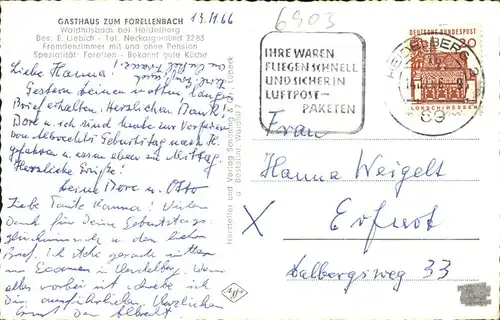 GASTHAUS ZUM FORELLENBACH
Waldhilsbach bei Heidelberg
Bes. E. Liebich - Tel. Neckargemünd 2283
Fremdenzimmer mit und ohne Pension
Spezialität: Forellen - Bekannt gute Küche
19.11.66
6903
Liebe Hanna!
Gestern deinen lieben langen
Brief erhalten. Herzlichen Dank!
Dore u. ich sind heute zur Vorfeier
von Albrechts Geburtstag nach H.
gefahren u. essen eben zu Mittag.
Herzliche Grüße!
Deine Dore u. Otto
Liebe Tante Hanna! Vielen
Dank für Deine Geburtstags-
glückwünsche u. den lieben
Brief. Ich stehe gerade mitten
im Examen in Heidelberg. Wenn
alles vorbei ist, schreibe ich
Dir ausführlicher. Herzlichen
Gruß Dein Albrecht
Hersteller und Verlag Schöning & Co., Lübeck
IHRE WAREN
FLIEGEN SCHNELL
UND SICHER IN
LUFTPOST-
PAKETEN
DEUTSCHE BUNDESPOST
20
LORSCH/HESSEN
HEIDELBERG
69
Frau
Hanna Weigelt
X
Erfurt
Dalbergsweg 33